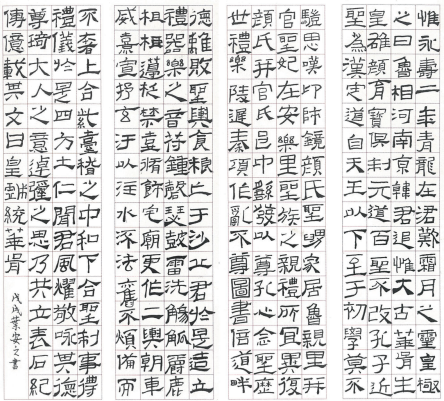 惟永壽二年龍在涒歎霜月之靈皇極
之日魯相河南京韓君追惟大古華胥生
皇雄顏育寶俱制元道百王不改孔子近
聖為漢定道自天王以下至于初學莫不
驥思嘆卬師鏡顏氏聖舅家居魯親里并
官聖妃在安樂里聖族之親禮所宜異復
顏氏并官氏邑中繇發以尊孔心念聖歷
世禮樂陵遲秦項作亂不尊圖書倍道畔
德離敗聖輿食糧亡于沙丘君於是造立
禮器樂之音苻鍾磬瑟鼓雷洗觴觚爵鹿
柤梪籩柉禁壺脩飾宅廟更作二輿朝車
威熹宣抒玄汙以注水流法舊不煩備而
不奢上合紫臺稽之中和下合聖制事得
禮儀於是四方士仁聞君風燿敬咏其德
尊琦大人之意逴彌之思乃共立表石紀
傳億載其文曰皇戲統華胥
戊戌葉安文書